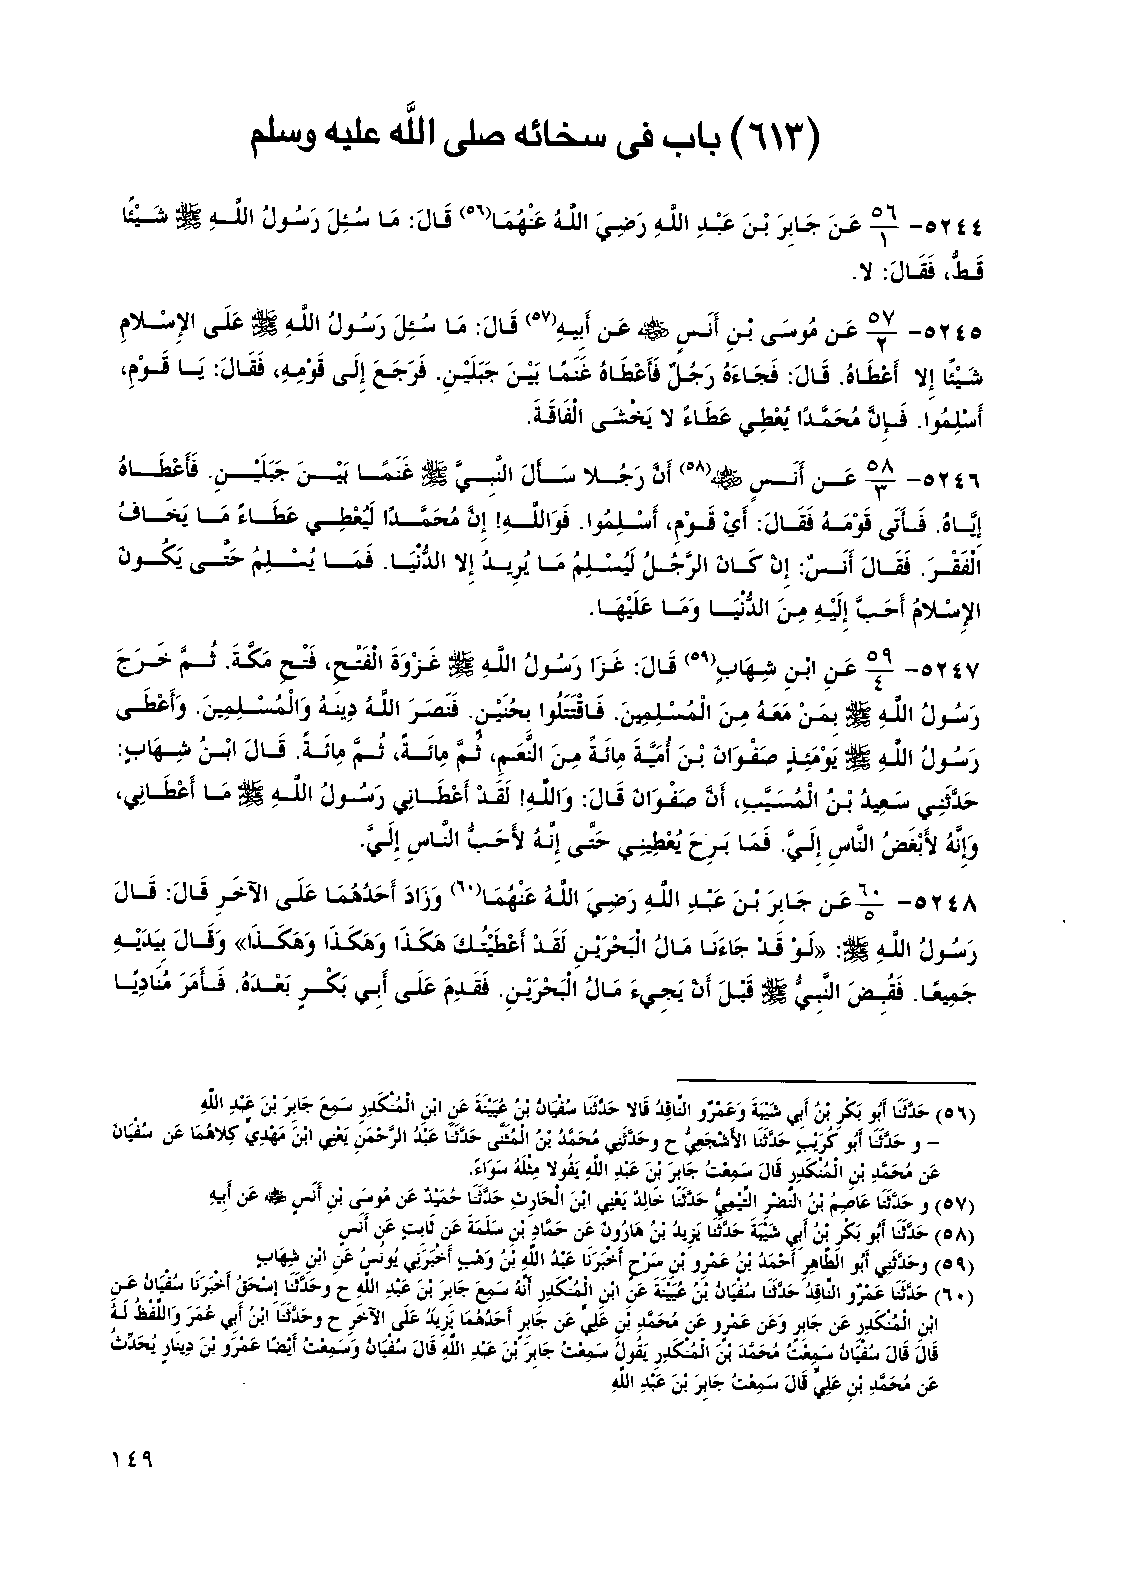 (٦١٣) باب في سخائه صلى اللَّه عليه وسلم
٥٢٤٤- ٥٦/١ عَن جَابِرَ بْنَ عَبْدِ اللَّهِ رَضِيَ اللَّهُ عَنْهُمَا(٥٦) قَالَ: مَا سُئِلَ رَسُولُ اللَّهِ ﷺ شَيْئًا
قَطُّ، فَقَالَ: لا.
٥٢٤٥- ٥٧/٢ عَن مُوسَى بْنِ أَنَسٍ ﷺ عَن أَبِيهِ(٥٧) قَالَ: مَا سُئِلَ رَسُولُ اللَّهِ ﷺ عَلَى الإِسْلامِ
شَيْئًا إلا أَعْطَاهُ. قَالَ: فَجَاءَهُ رَجُلٌ فَأَعْطَاهُ غَنَمًا بَيْنَ جَبَلَيْنِ. فَرَجَعَ إِلَى قَوْمِهِ، فَقَالَ: يَا قَوْمِ،
أَسْلِمُوا. فَإِنَّ مُحَمَّدًا يُعْطِي عَطَاءً لا يَخْشَى الْفَاقَةَ.
٥٢٤٦- ٥٨/٣ عَن أَنَسٍ ﷺ(٥٨) أَنَّ رَجُلا سَأَلَ النَّبِيَّ ﷺ غَنَمًا بَيْنَ جَبَلَيْنِ. فَأَعْطَاهُ
إِيَّاهُ. فَأَتَى قَوْمَهُ فَقَالَ: أَيْ قَوْمِ، أَسْلِمُوا. فَوَاللَّهِ! إِنَّ مُحَمَّدًا لَيُعْطِي عَطَاءً مَا يَخَافُ
الْفَقْرَ. فَقَالَ أَنَسٌ: إِنْ كَانَ الرَّجُلُ لَيُسْلِمُ مَا يُرِيدُ إِلا الدُّنْيَا. فَمَا يُسْلِمُ حَتَّى يَكُونَ
الإِسْلامُ أَحَبَّ إِلَيْهِ مِنَ الدُّنْيَا وَمَا عَلَيْهَا.
٥٢٤٧- ٥٩/٤ عَنِ ابْنِ شِهَابٍ(٥٩) قَالَ: غَزَا رَسُولُ اللَّهِ ﷺ غَزْوَةَ الْفَتْحِ، فَتْحِ مَكَّةَ. ثُمَّ خَرَجَ
رَسُولُ اللَّهِ ﷺ بِمَنْ مَعَهُ مِنَ الْمُسْلِمِينَ. فَاقْتَتَلُوا بِحُنَيْنٍ. فَنَصَرَ اللَّهُ دِينَهُ وَالْمُسْلِمِينَ. وَأَعْطَى
رَسُولُ اللَّهِ ﷺ يَوْمَئِذٍ صَفْوَانَ بْنَ أُمَيَّةَ مِائَةً مِنَ النَّعَمِ، ثُمَّ مِائَةً، ثُمَّ مِائَةً. قَالَ ابْنُ شِهَابٍ:
حَدَّثَنِي سَعِيدُ بْنُ الْمُسَيَّبِ، أَنَّ صَفْوَانَ قَالَ: وَاللَّهِ! لَقَدْ أَعْطَانِي رَسُولُ اللَّهِ ﷺ مَا أَعْطَانِي،
وَإِنَّهُ لأَبْغَضُ النَّاسِ إِلَيَّ. فَمَا بَرِحَ يُعْطِينِي حَتَّى إِنَّهُ لأَحَبُّ النَّاسِ إِلَيَّ.
٥٢٤٨- ٦٠/٥ عَن جَابِرَ بْنَ عَبْدِ اللَّهِ رَضِيَ اللَّهُ عَنْهُمَا(٦٠) وَزَادَ أَحَدُهُمَا عَلَى الآخَرِ قَالَ: قَالَ
رَسُولُ اللَّهِ ﷺ: «لَوْ قَدْ جَاءَنَا مَالُ الْبَحْرَيْنِ لَقَدْ أَعْطَيْتُكَ هَكَذَا وَهَكَذَا وَهَكَذَا» وَقَالَ بِيَدَيْهِ
جَمِيعًا. فَقُبِضَ النَّبِيُّ ﷺ قَبْلَ أَنْ يَجِيءَ مَالُ الْبَحْرَيْنِ. فَقَدِمَ عَلَى أَبِي بَكْرٍ بَعْدَهُ. فَأَمَرَ مُنَادِيًا
(٥٦) حَدَّثَنَا أَبُو بَكْرِ بْنُ أَبِي شَيْبَةَ وَعَمْرٌو النَّاقِدُ قَالا حَدَّثَنَا سُفْيَانُ بْنُ عُيَيْنَةَ عَنِ ابْنِ الْمُنْكَدِرِ سَمِعَ جَابِرَ بْنَ عَبْدِ اللَّهِ
- و حَدَّثَنَا أَبُو كُرَيْبٍ حَدَّثَنَا الأَشْجَعِيُّ ح وحَدَّثَنِي مُحَمَّدُ بْنُ الْمُثَنَّى حَدَّثَنَا عَبْدُ الرَّحْمَنِ يَعْنِي ابْنَ مَهْدِيٍّ كِلاهُمَا عَن سُفْيَانَ
عَن مُحَمَّدِ بْنِ الْمُنْكَدِرِ قَالَ سَمِعْتُ جَابِرَ بْنَ عَبْدِ اللَّهِ يَقُولا مِثْلَهُ سَوَاءً.
(٥٧) و حَدَّثَنَا عَاصِمُ بْنُ النَّضْرِ التَّيْمِيُّ حَدَّثَنَا خَالِدٌ يَعْنِي ابْنَ الْحَارِثِ حَدَّثَنَا حُمَيْدٌ عَن مُوسَى بْنِ أَنَسٍ ﷺ عَن أَبِيهِ
(٥٨) حَدَّثَنَا أَبُو بَكْرِ بْنُ أَبِي شَيْبَةَ حَدَّثَنَا يَزِيدُ بْنُ هَارُونَ عَن حَمَّادِ بْنِ سَلَمَةَ عَن ثَابِتٍ عَن أَنَسٍ
(٥٩) وحَدَّثَنِي أَبُو الطَّاهِرِ أَحْمَدُ بْنُ عَمْرِو بْنِ سَرْحٍ أَخْبَرَنَا عَبْدُ اللَّهِ بْنُ وَهْبٍ أَخْبَرَنِي يُونُسُ عَنِ ابْنِ شِهَابٍ
(٦٠) حَدَّثَنَا عَمْرٌو النَّاقِدُ حَدَّثَنَا سُفْيَانُ بْنُ عُيَيْنَةَ عَنِ ابْنِ الْمُنْكَدِرِ أَنَّهُ سَمِعَ جَابِرَ بْنَ عَبْدِ اللَّهِ ح وحَدَّثَنَا إِسْحَقُ أَخْبَرَنَا سُفْيَانُ عَنِ
ابْنِ الْمُنْكَدِرِ عَن جَابِرٍ وَعَن عَمْرٍو عَن مُحَمَّدِ بْنِ عَلِيٍّ عَن جَابِرٍ أَحَدُهُمَا يَزِيدُ عَلَى الآخَرِ ح وحَدَّثَنَا ابْنُ أَبِي عُمَرَ وَاللَّفْظُ لَهُ
قَالَ قَالَ سُفْيَانُ سَمِعْتُ مُحَمَّدَ بْنَ الْمُنْكَدِرِ يَقُولُ سَمِعْتُ جَابِرَ بْنَ عَبْدِ اللَّهِ قَالَ سُفْيَانُ وَسَمِعْتُ أَيْضًا عَمْرَو بْنَ دِينَارٍ يُحَدِّثُ
عَن مُحَمَّدِ بْنِ عَلِيٍّ قَالَ سَمِعْتُ جَابِرَ بْنَ عَبْدِ اللَّهِ
١٤٩